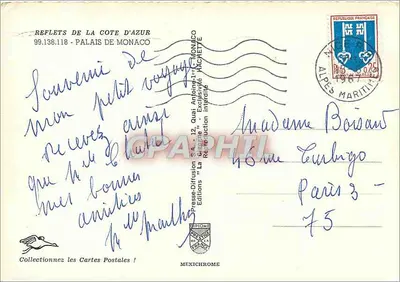 REFLETS DE LA COTE D'AZUR
99.138.118 - PALAIS DE MONACO
Souvenir de
mon petit voyage
recevez ainsi
que
mes bonnes
amitiés
Marthe
Presse-Diffusion S.A. 12, Quai Antoine-1er MONACO
Editions "La" - Exclusivité HACHETTE
Reproduction interdite
REPUBLIQUE FRANÇAISE
NICE
1967
ALPES MARITIMES
Madame
48 rue Turbigo
Paris 3-
75
CPAPHIL
Collectionnez les Cartes Postales !
MEXICHROME